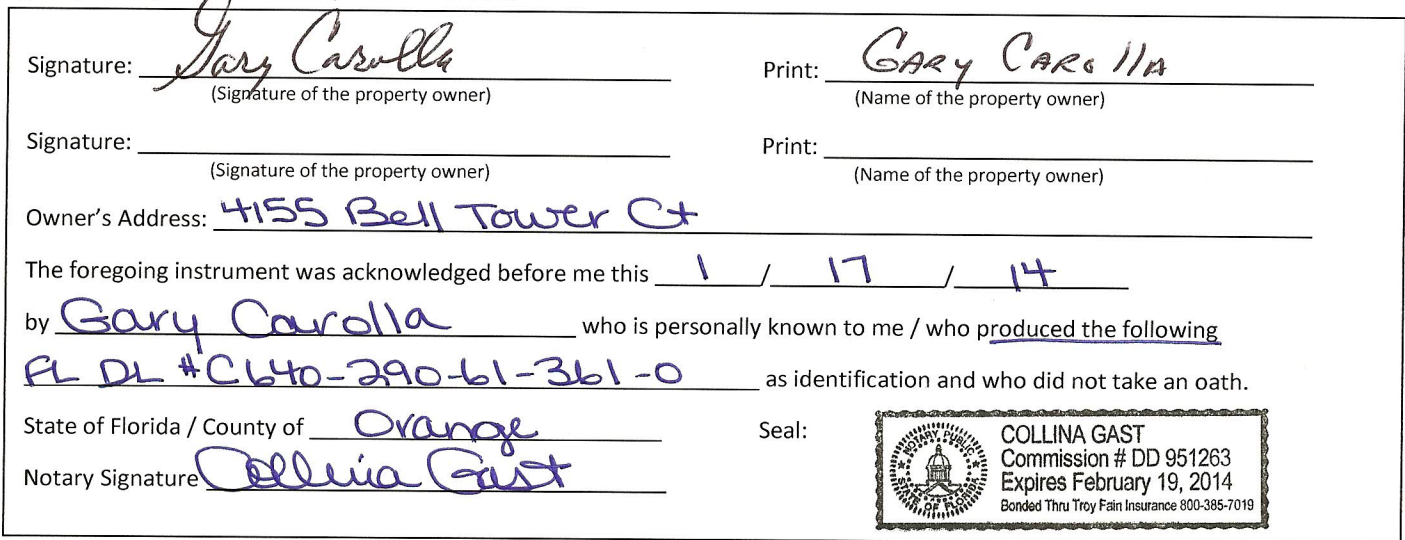 Signature: Gary Carolla Print: GARY CAROllA
(Signature of the property owner) (Name of the property owner)
Signature: Print:
(Signature of the property owner) (Name of the property owner)
Owner's Address: 4155 Bell Tower Ct
The foregoing instrument was acknowledged before me this 1 / 17 / 14
by Gary Carolla who is personally known to me / who produced the following
FL DL #C640-290-61-361-0 as identification and who did not take an oath.
State of Florida / County of Orange Seal:
Notary Signature Collina Gast
NOTARY PUBLIC
STATE OF FLORIDA
COLLINA GAST
Commission # DD 951263
Expires February 19, 2014
Bonded Thru Troy Fain Insurance 800-385-7019